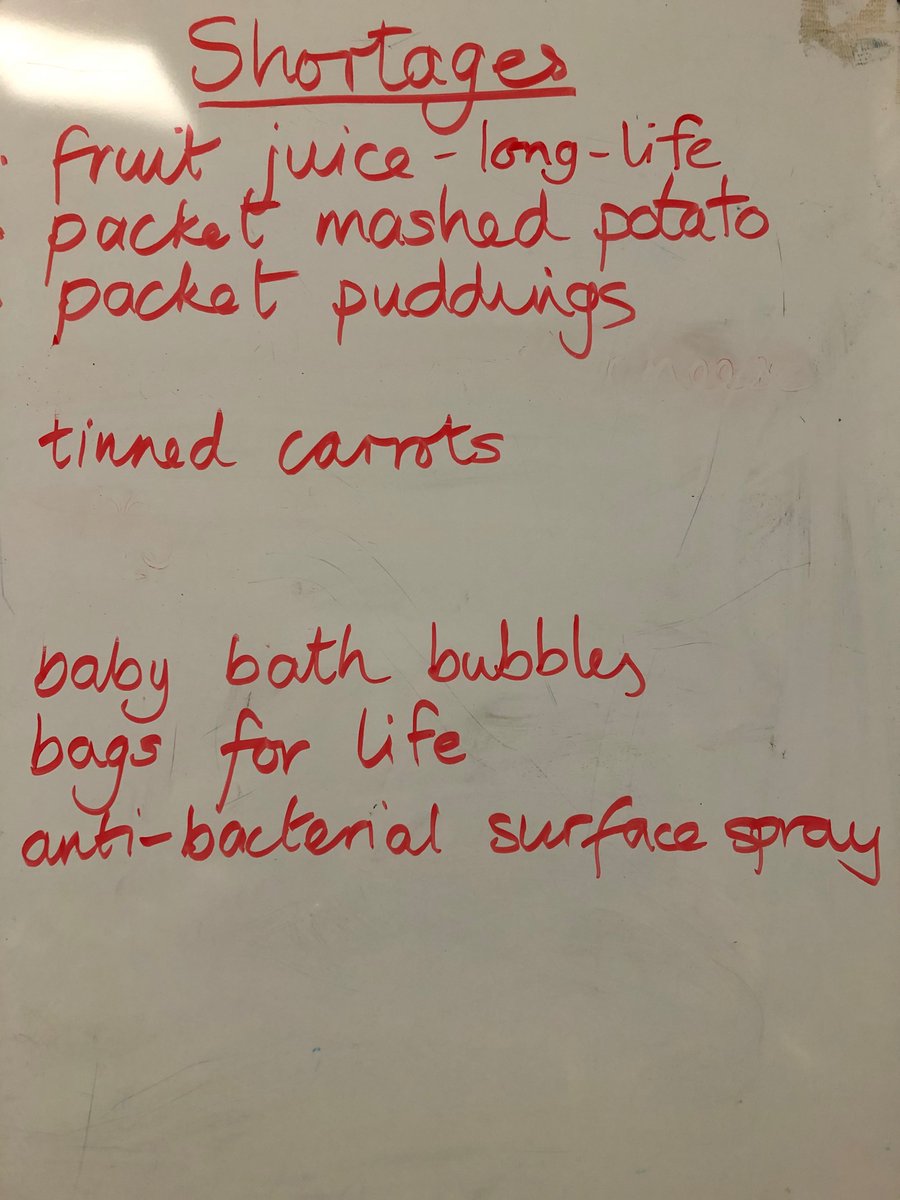 Shortages
· fruit juice - long-life
· packet mashed potato
· packet puddings
tinned carrots
baby bath bubbles
bags for life
anti-bacterial surface spray